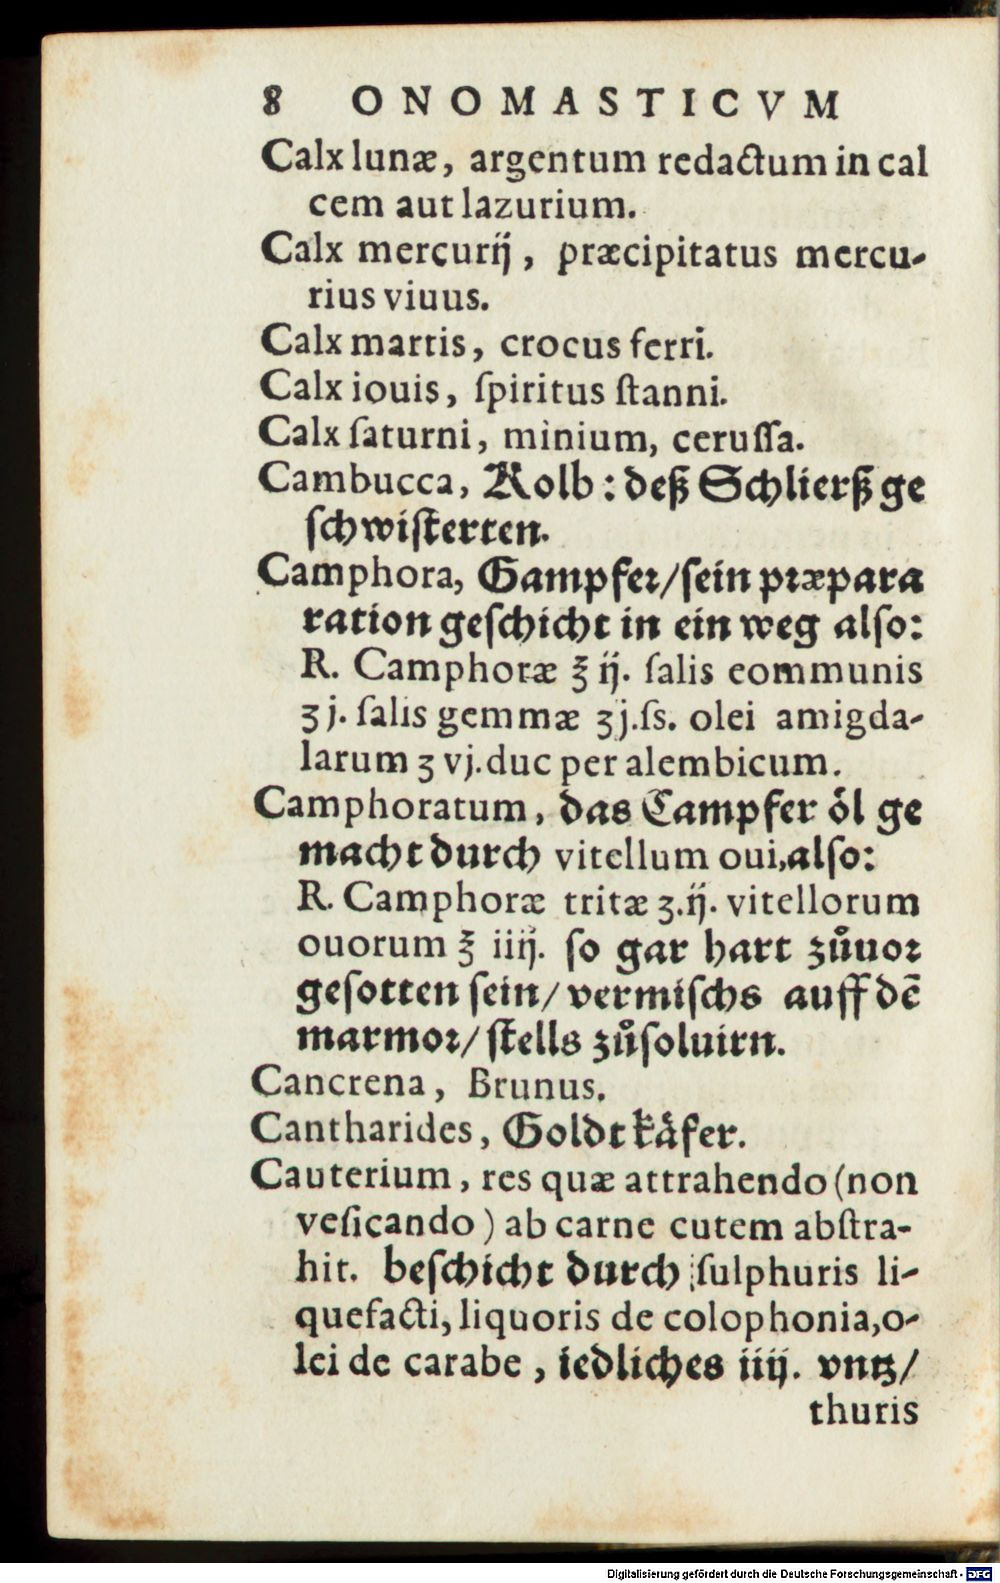 8 ONOMASTICVM
Calx lunæ, argentum redactum in cal
cem aut lazurium.
Calx mercurij, præcipitatus mercu-
rius viuus.
Calx martis, crocus ferri.
Calx iouis, ſpiritus ſtanni.
Calx ſaturni, minium, ceruſſa.
Cambucca, Kolb: deß Schlierß ge
ſchwiſterten.
Camphora, Gampfer/ſein præpara
ration geſchicht in ein weg alſo:
R. Camphoræ ℥ ij. ſalis eommunis
ʒ j. ſalis gemmæ ʒj.ſs. olei amigda-
larum ʒ vj.duc per alembicum.
Camphoratum, das Campfer oͤl ge
macht durch vitellum oui,alſo:
R. Camphoræ tritæ ʒ.ij. vitellorum
ouorum ℥ iiij. ſo gar hart zuͦuor
geſotten ſein/vermiſchs auff dē
marmor/ſtells zuͦſoluirn.
Cancrena, Brunus.
Cantharides, Goldtkaͤfer.
Cauterium, res quæ attrahendo (non
veſicando) ab carne cutem abſtra-
hit. beſchicht durch ſulphuris li-
quefacti, liquoris de colophonia,o-
lei de carabe, iedliches iiij. vntz/
thuris
Digitalisierung gefördert durch die Deutsche Forschungsgemeinschaft - DFG